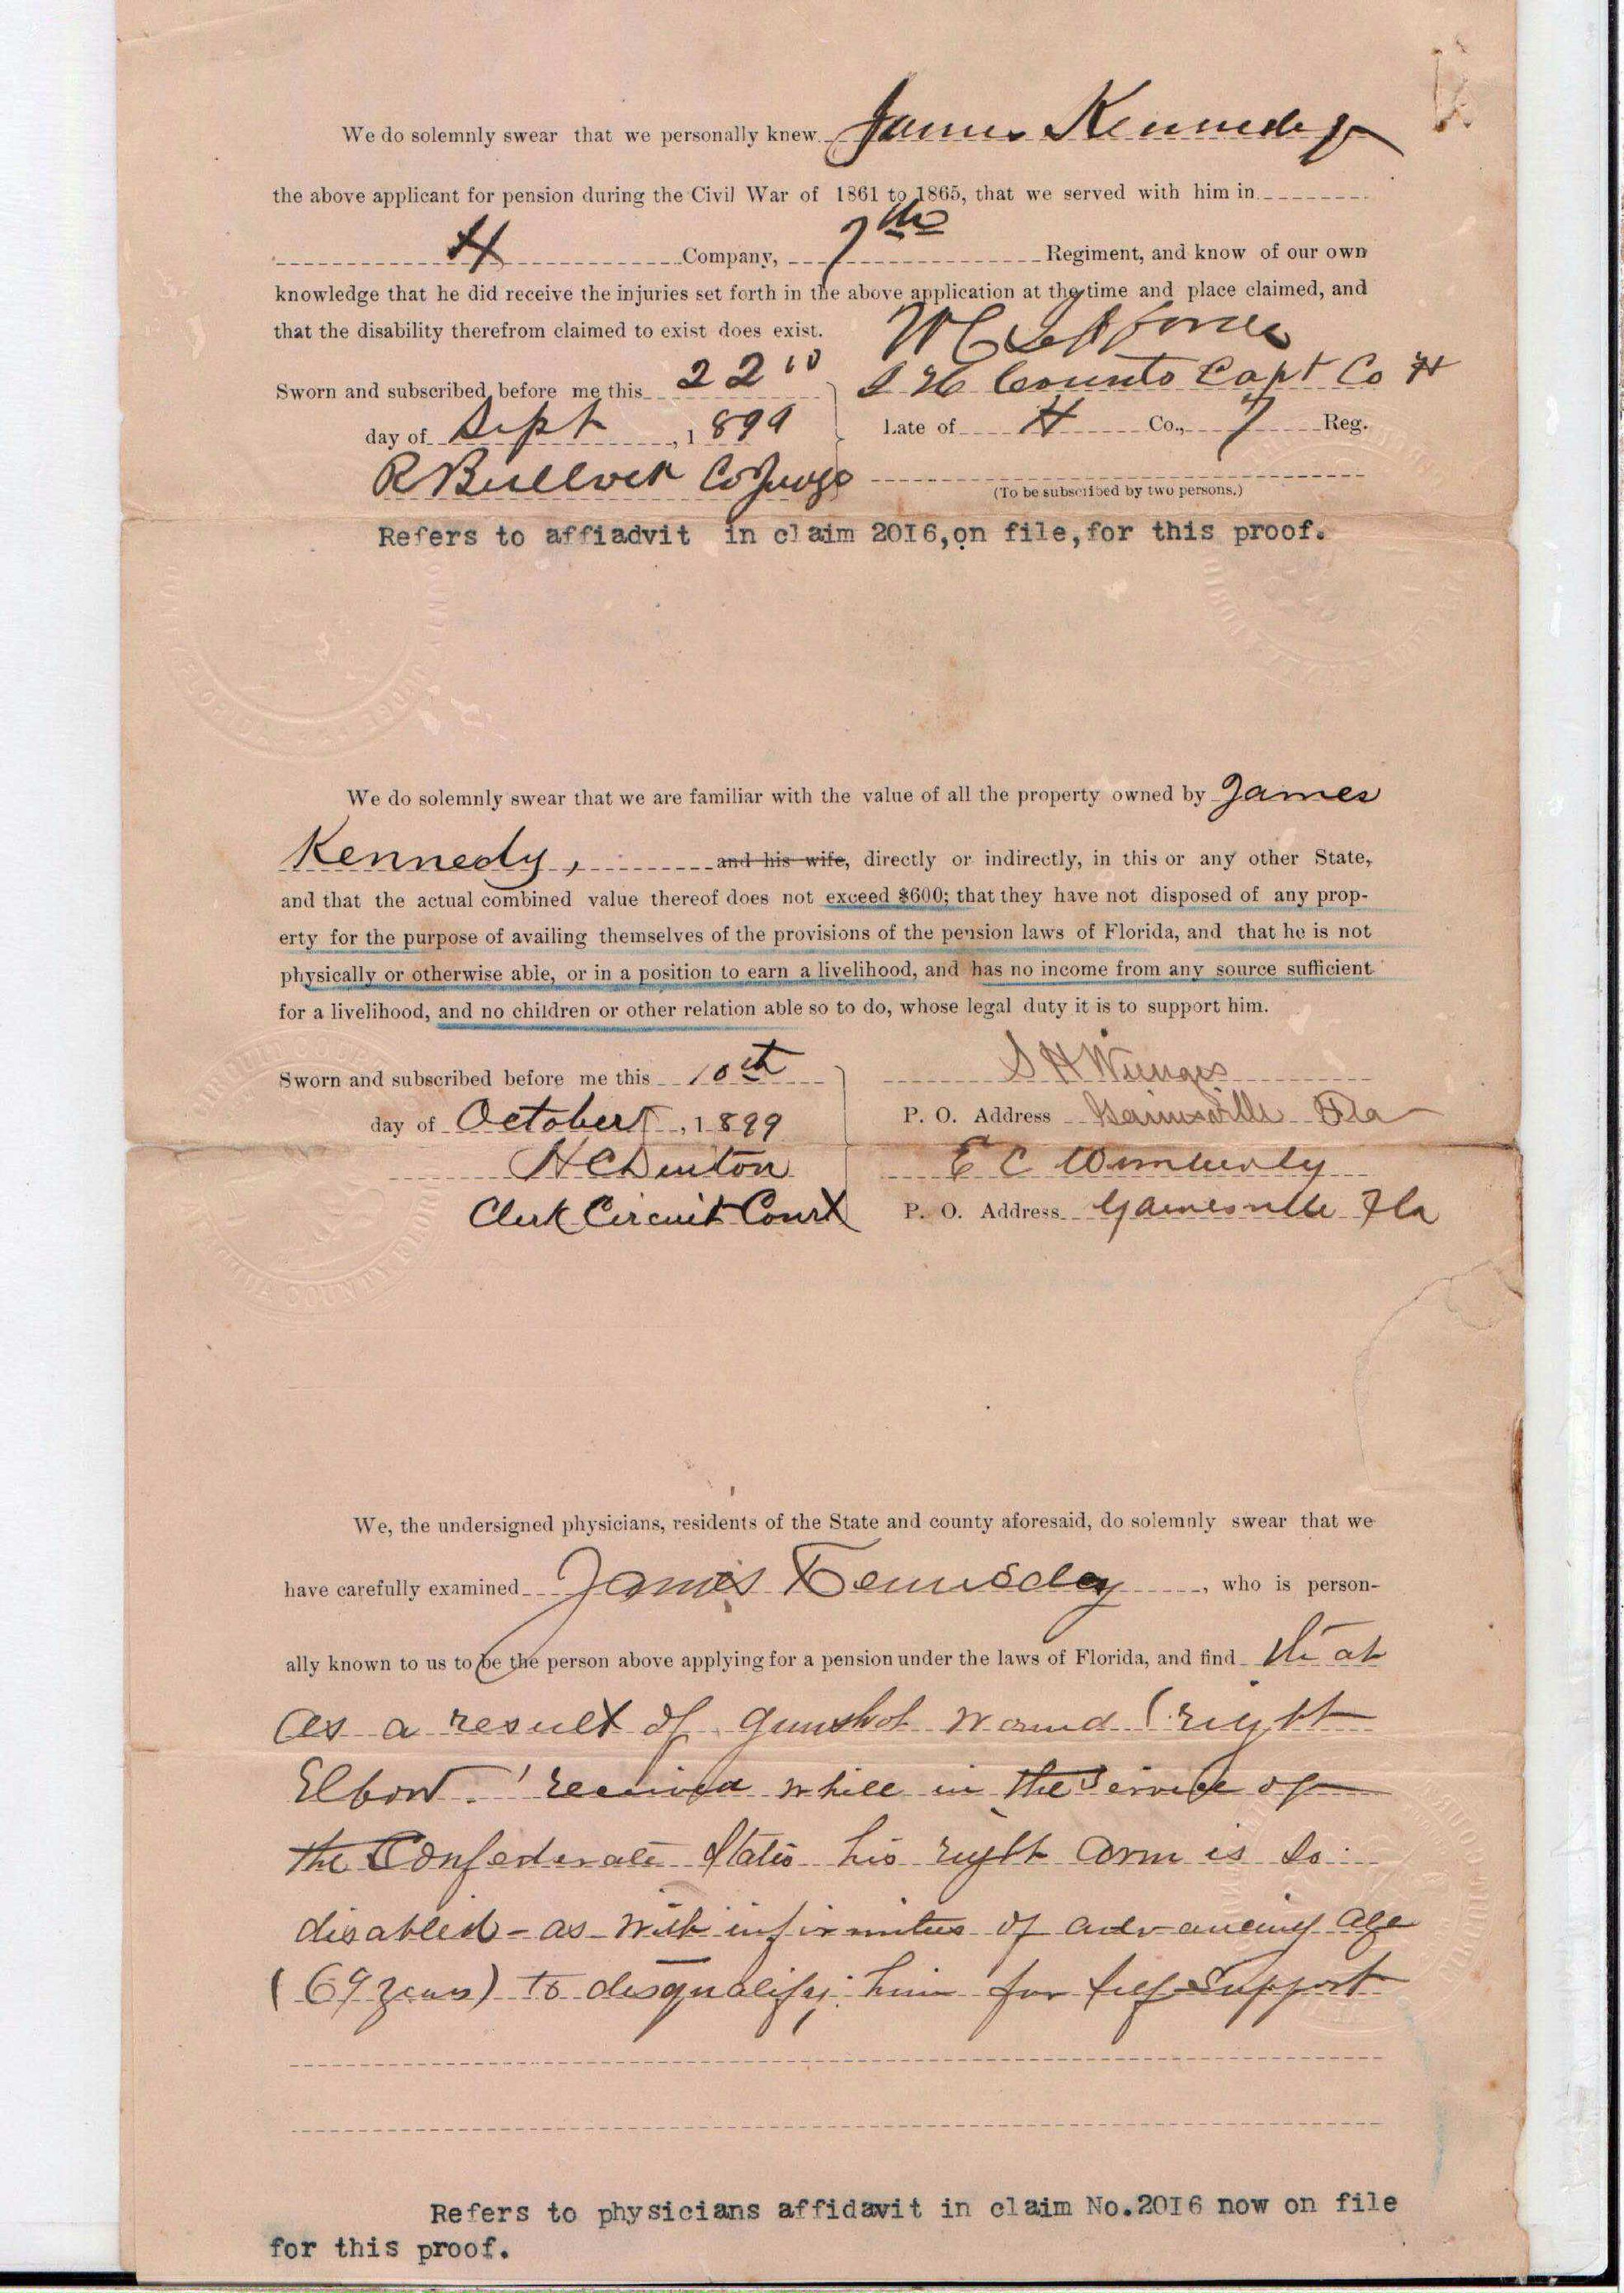 We do solemnly swear that we personally knew James Kennedy
the above applicant for pension during the Civil War of 1861 to 1865, that we served with him in
H Company, 7th Regiment, and know of our own
knowledge that he did receive the injuries set forth in the above application at the time and place claimed, and
that the disability therefrom claimed to exist does exist.
Sworn and subscribed before me this 22
S H Counts Capt Co H
day of Sept, 1899
Late of H Co., 7 Reg.
R Bullock Co Judge
(To be subscribed by two persons.)
Refers to affiadvit in claim 2016,on file,for this proof.
We do solemnly swear that we are familiar with the value of all the property owned by James
Kennedy, and his wife, directly or indirectly, in this or any other State,
and that the actual combined value thereof does not exceed $600; that they have not disposed of any prop-
erty for the purpose of availing themselves of the provisions of the pension laws of Florida, and that he is not
physically or otherwise able, or in a position to earn a livelihood, and has no income from any source sufficient
for a livelihood, and no children or other relation able so to do, whose legal duty it is to support him.
Sworn and subscribed before me this 10th
S H Wienges
day of October, 1899
P. O. Address Gainesville Fla
H C Denton
E C Wimberly
Clerk Circuit Court
P. O. Address Gainesville Fla
We, the undersigned physicians, residents of the State and county aforesaid, do solemnly swear that we
have carefully examined James Kennedy, who is person-
ally known to us to be the person above applying for a pension under the laws of Florida, and find that
as a result of gunshot wound (right
Elbow) received while in the Service of
the Confederate States his right arm is so
disabled - as with infirmities of advancing age
(69 years) to disqualify him for self support
Refers to physicians affidavit in claim No.2016 now on file
for this proof.